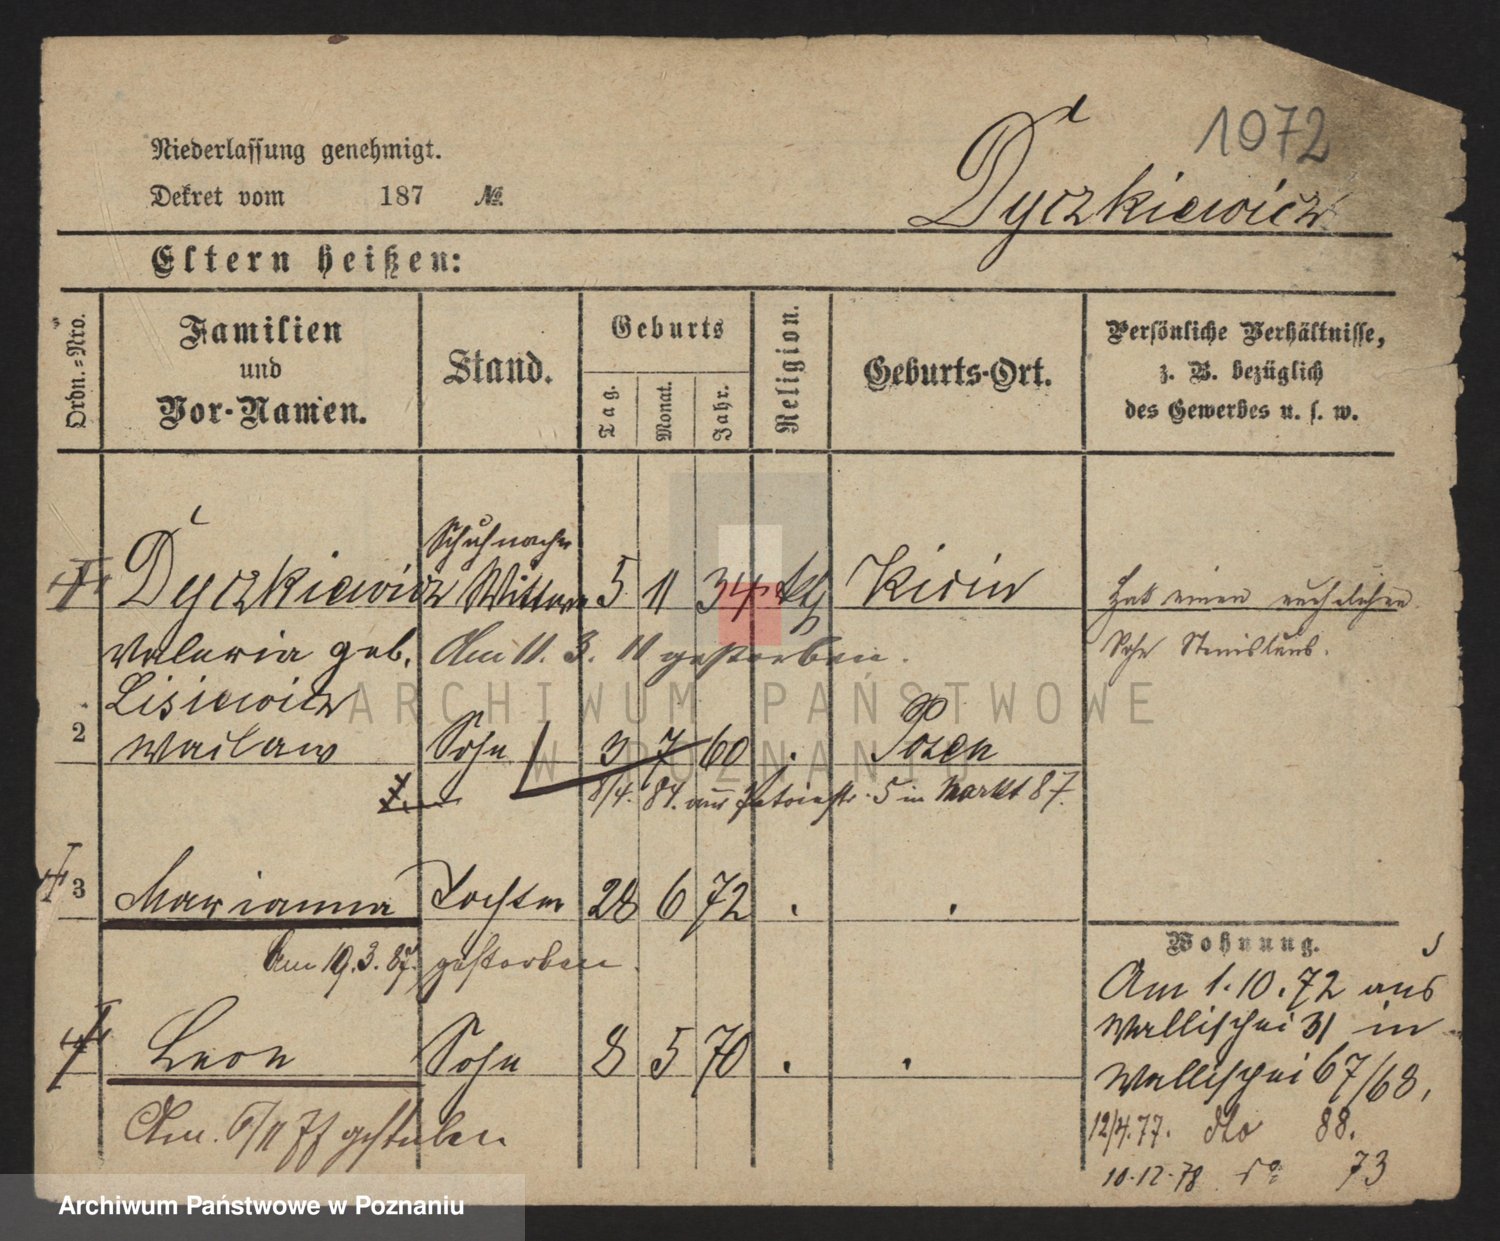 1072
Niederlassung genehmigt.
Dekret vom 187 №
Dyczkiewicz
Eltern heißen:
Ordn.-Nro.
Familien und Vor-Namen.
Stand.
Geburts
Tag.
Monat.
Jahr.
Religion.
Geburts-Ort.
Persönliche Verhältnisse,
z. B. bezüglich
des Gewerbes u. s. w.
Schuhmacher
Dyczkiewicz Wittwe 5 11 34 kth Kicin
Hat einen unehelichen
Valeria geb. Am 11. 3. 11 gestorben.
Sohn Stanislaus.
Lisiewicz
2 Waclaw Sohn 3 7 60 . Posen
8/4. 84. aus 5 in Markt 87.
3 Marianna Tochter 28 6 72 . .
Am 19. 3. 87. gestorben.
Leon Sohn 8 5 70 . .
Am 6/11 77 gestorben
Wohnung.
Am 1.10.72 aus
Wallischei 31 in
Wallischei 67/68,
12/4.77. dto 88.
10.12.78 do 73
ARCHIWUM PAŃSTWOWE
W POZNANIU
Archiwum Państwowe w Poznaniu